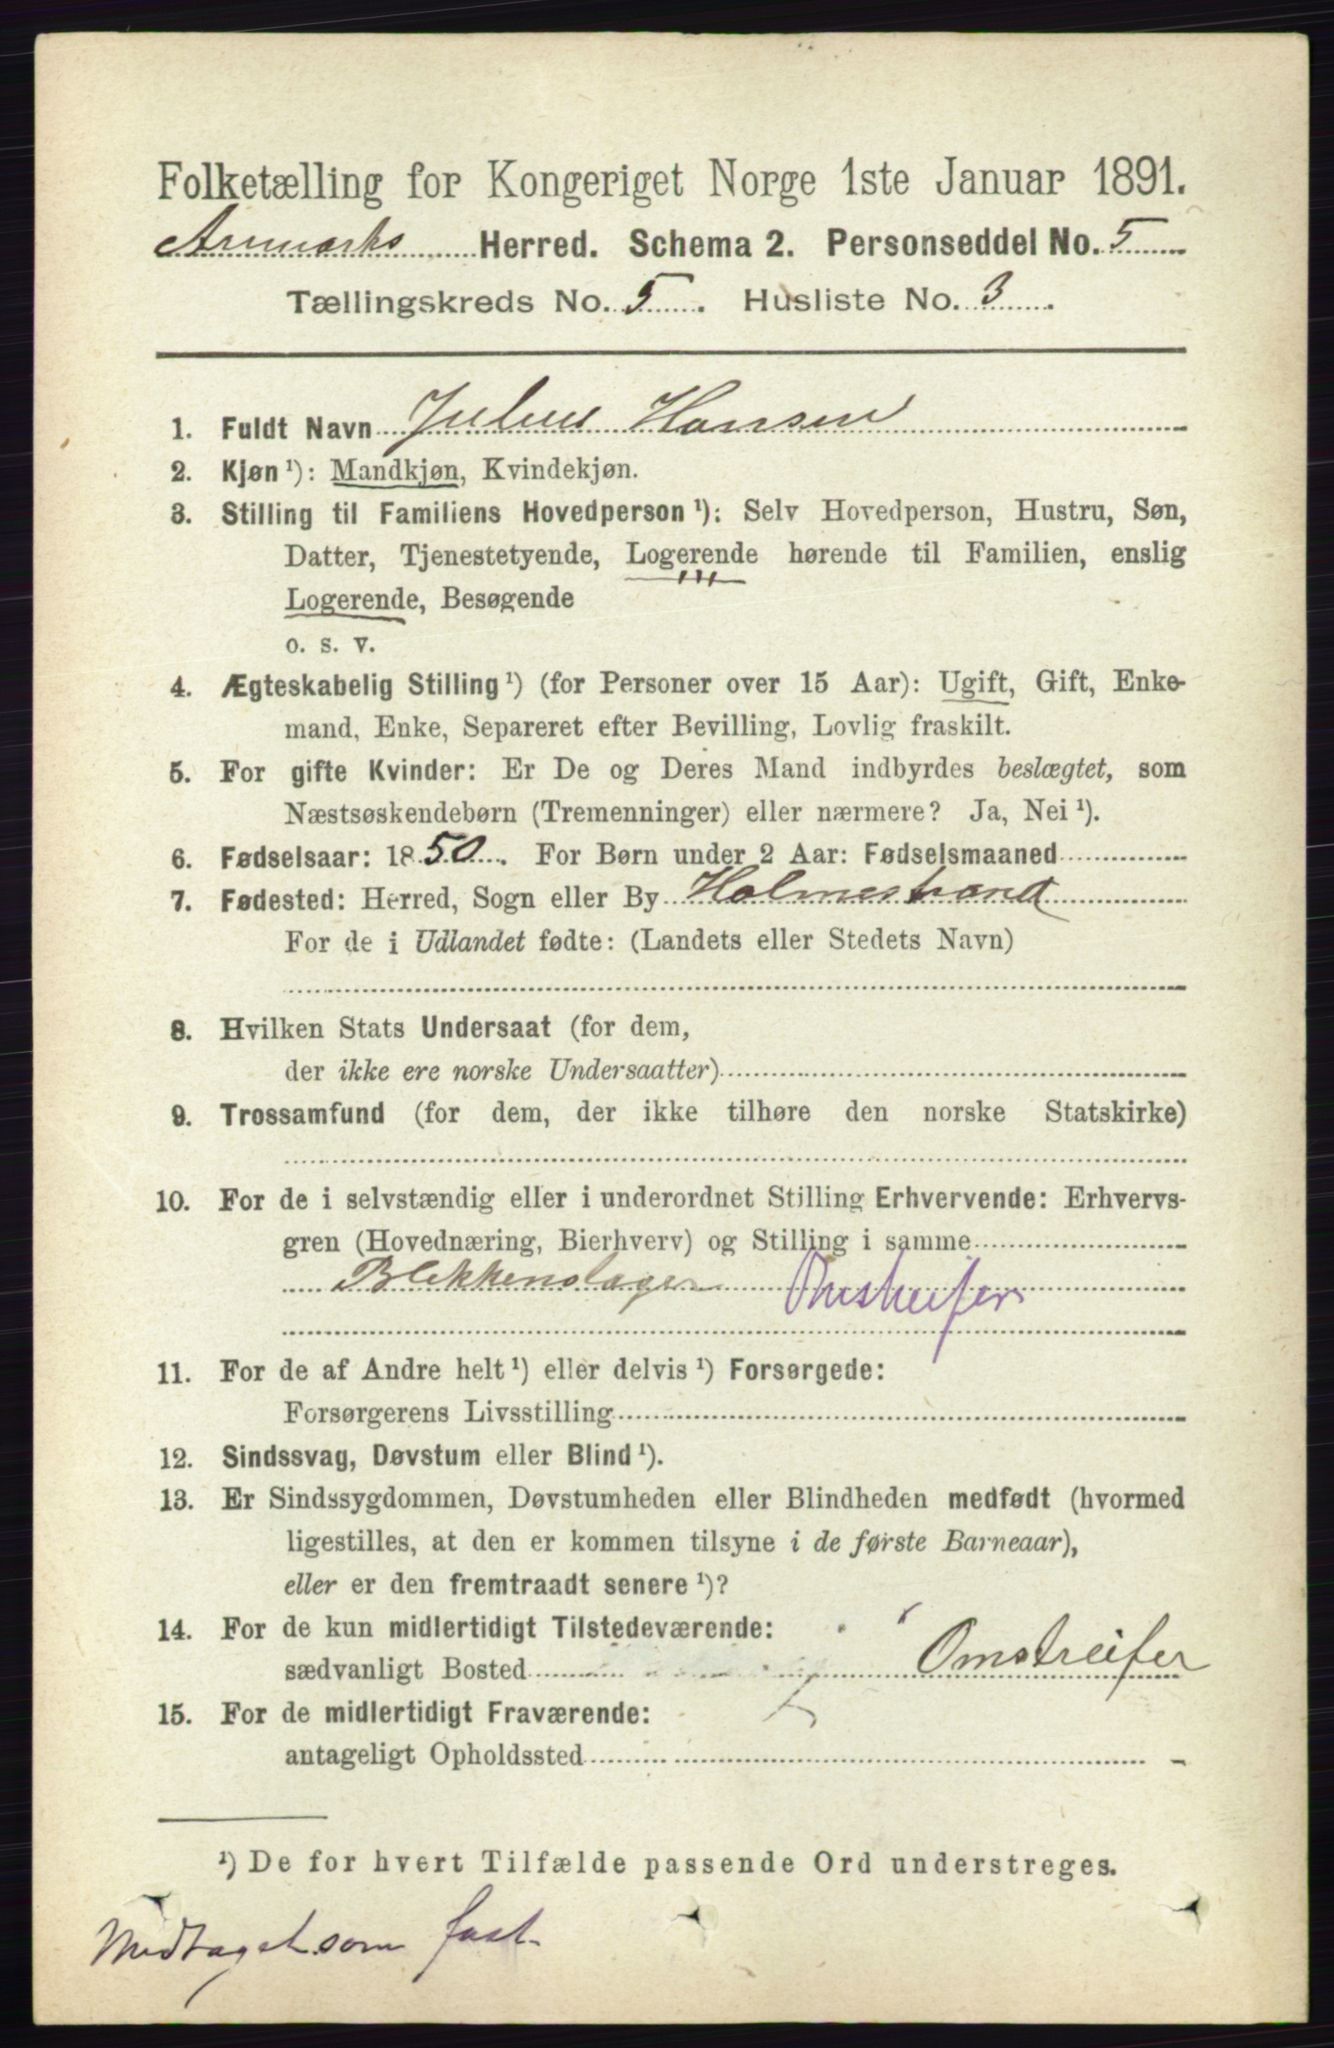 Folketælling for Kongeriget Norge 1ste Januar 1891.
Aremarks Herred. Schema 2. Personseddel No. 5
Tællingskreds No. 5. Husliste No. 3.
1. Fuldt Navn Julius Hansen
2. Kjøn ¹): Mandkjøn, Kvindekjøn.
3. Stilling til Familiens Hovedperson ¹): Selv Hovedperson, Hustru, Søn,
Datter, Tjenestetyende, Logerende hørende til Familien, enslig
Logerende, Besøgende
o. s. v.
4. Ægteskabelig Stilling ¹) (for Personer over 15 Aar): Ugift, Gift, Enke-
mand, Enke, Separeret efter Bevilling, Lovlig fraskilt.
5. For gifte Kvinder: Er De og Deres Mand indbyrdes beslægtet, som
Næstsøskendebørn (Tremenninger) eller nærmere? Ja, Nei ¹).
6. Fødselsaar: 1850. For Børn under 2 Aar: Fødselsmaaned
7. Fødested: Herred, Sogn eller By Holmestrand
For de i Udlandet fødte: (Landets eller Stedets Navn)
8. Hvilken Stats Undersaat (for dem,
der ikke ere norske Undersaatter)
9. Trossamfund (for dem, der ikke tilhøre den norske Statskirke)
10. For de i selvstændig eller i underordnet Stilling Erhvervende: Erhvervs-
gren (Hovednæring, Bierhverv) og Stilling i samme
Blikkenslager Omstreifer
11. For de af Andre helt ¹) eller delvis ¹) Forsørgede:
Forsørgerens Livsstilling
12. Sindssvag, Døvstum eller Blind ¹).
13. Er Sindssygdommen, Døvstumheden eller Blindheden medfødt (hvormed
ligestilles, at den er kommen tilsyne i de første Barneaar),
eller er den fremtraadt senere ¹)?
14. For de kun midlertidigt Tilstedeværende:
sædvanligt Bosted Omstreifer
15. For de midlertidigt Fraværende:
antageligt Opholdssted
¹) De for hvert Tilfælde passende Ord understreges.
Medtaget som fast.